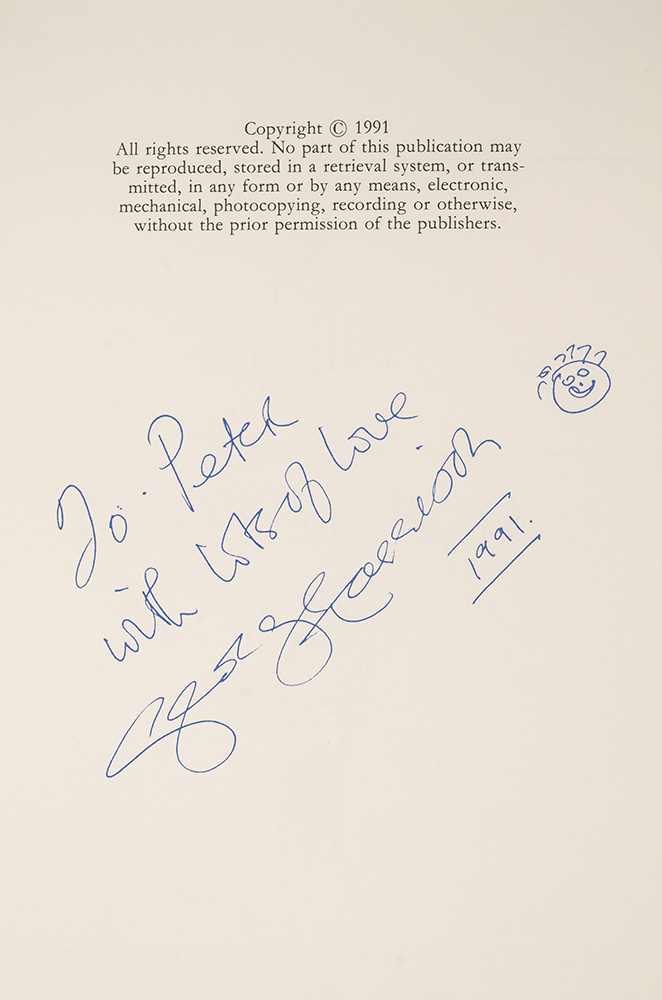 Copyright © 1991
All rights reserved. No part of this publication may
be reproduced, stored in a retrieval system, or trans-
mitted, in any form or by any means, electronic,
mechanical, photocopying, recording or otherwise,
without the prior permission of the publishers.
To. Peter
with lots of love
George Harrison
1991.